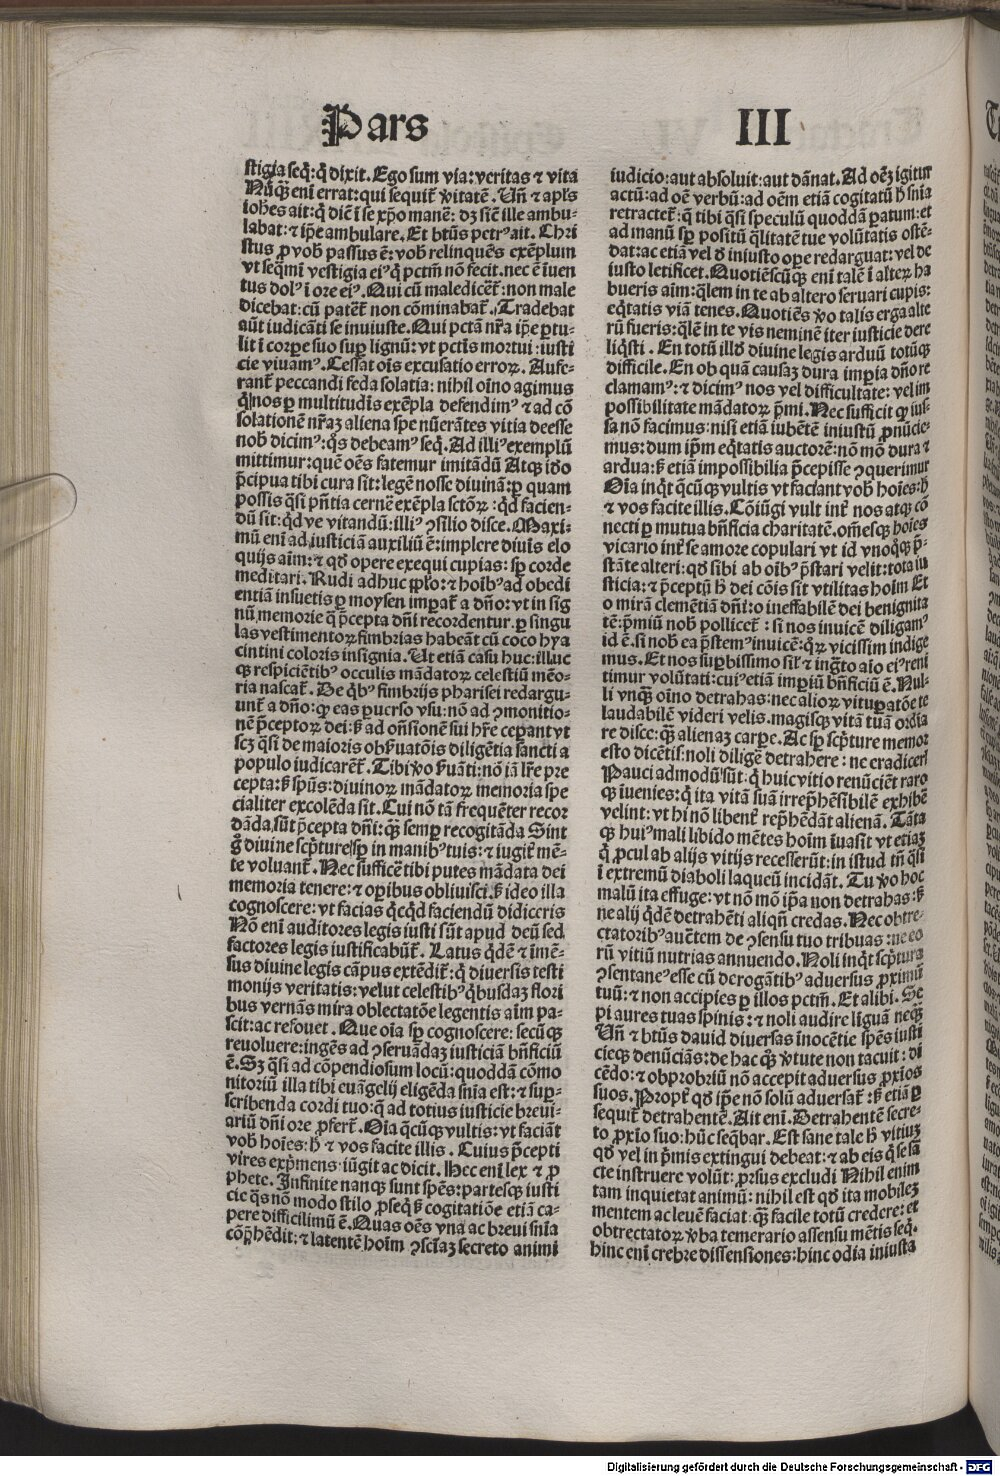 Pars III
stigia seq̄:q̄ dixit. Ego sum via:veritas ⁊ vita
Nūq̄ȝ enī errat:qui sequit᷑ v̄itatē. Uñ ⁊ apl̄s
iohēs ait:q̄ diē ī se xp̄o manē: dȝ sic̄ ille ambu-
labat:⁊ ip̄e ambulare. Et btūs petrꝰ ait. Chri
stus ꝓ vob̄ passus ē:vob̄ relinquēs exēplum
vt seqm̄i vestigia eiꝰ q̄ pctm̄ nō fecit.nec ē īuen
tus dolꝰ ī ore eiꝰ. Qui cū maledicet᷑:non male
dicebat:cū patet᷑ non cōminabat᷑. Tradebat
aūt iudicāti se iniuste. Qui pctā nr̄a ip̄e ꝑtu-
lit ī corꝑe suo suꝑ lignū:vt pctīs mortui:iusti
cie viuamꝰ. Cessat oīs excusatio erroꝝ. Aufe-
rant᷑ peccandi feda solatia:nihil oīno agimus
q̄ nos ꝑ multitudīs exēpla defendimꝰ ⁊ ad cō
solationē nr̄aȝ aliena spe nūerātes vitia deesse
nob̄ dicimꝰ:q̄s debeamꝰ seq̄. Ad illiꝰ exemplū
mittimur:quē oēs fatemur imitādū Atqȝ iđo
p̄cipua tibi cura sit:legē nosse diuinā:ꝑ quam
possis q̄si pn̄tia cernē exēpla sctōꝝ:q̄d facien-
dū sit:q̄d ve vitandū:illiꝰ ꝯsilio disce. Maxi-
mū enī ad iusticiā auxiliū ē:implere diuīs elo
quijs aīm:⁊ qđ opere exequi cupias:sꝑ corde
meditari. Rudi adhuc pp̄lo:⁊ hoībꝰ ad obedi
entiā insuetis ꝑ moysen imꝑat᷑ a dño:vt in sig
nū memorie q̄ p̄cepta dn̄i recordentur.ꝑ singu
las vestimentoꝝ fimbrias habeāt cū coco hya
cintini coloris insignia. Ut etiā casu huc:illuc
qȝ respiciētibꝰ occulis mādatoꝝ celestiū mēo-
ria nascat᷑. De q̄bꝰ fimbrijs pharisei redargu-
unt᷑ a dño:qȝ eas ꝑuerso vsu:nō ad ꝯmonitio-
nē p̄ceptoꝝ dei:sȝ ad on̄sionē sui hr̄e ceperant vt
scȝ q̄si de maioris obs̄uatōis diligētia sancti a
populo iudicarēt᷑. Tibi v̄o s̄uāti:nō iā lr̄e pre
cepta:sȝ spūs:diuinoꝝ mādatoꝝ memoria spe
cialiter excolēda sit. Cui nō tā frequēter recor
dāda sūt p̄cepta dn̄i:q̄ȝ semꝑ recogitāda Sint
ḡ diuine scp̄ture sꝑ in manibꝰ tuis:⁊ iugit᷑ mē-
te voluant᷑. Nec sufficē tibi putes mādata dei
memoria tenere:⁊ oꝑibus obliuisci.sȝ ideo illa
cognoscere:vt facias q̄cq̄d faciendū didiceris
Nō enī auditores legis iusti sūt apud deū sed
factores legis iustificabūt᷑. Latus q̄dē ⁊ īmē-
sus diuine legis cāpus extēdit᷑:q̄ diuersis testi
monijs veritatis:velut celestibꝰ q̄busdaȝ flori
bus vernās mira oblectatōe legentis aīm pa-
scit:ac refouet. Que oīa sꝑ cognoscere:secūqȝ
reuoluere:ingēs ad ꝯseruādaȝ iusticiā bn̄ficiū
ē. Sȝ q̄si ad cōpendiosum locū:quoddā cōmo
nitoriū illa tibi euāgelij eligēda sn̄ia est:⁊ suꝑ-
scribenda cordi tuo:q̄ ad totius iusticie breui-
ariū dn̄i ore ꝓfert᷑. Oīa q̄cūqȝ vultis:vt faciāt
vob̄ hoīes:h̄ ⁊ vos facite illis. Cuius p̄cepti
vires exp̄mens iūgit ac dicit. Hec enī lex ⁊ ꝓ
phete. Infinite nanqȝ sunt spēs:partesqȝ iusti
cie q̄s nō modo stilo ꝓseq̄ sȝ cogitatiōe etiā ca-
pere difficilimū ē. Quas oēs vna ac breui sn̄ia
cōp̄hēdit:⁊ latentē hoīm ꝯsciaȝ secreto animi
iudicio:aut absoluit:aut dānat. Ad oēȝ igitur
actū:ad oē verbū:ad oēm etiā cogitatū h̄ sn̄ia
retractet᷑:q̄ tibi q̄si speculū quoddā ꝑatum:et
ad manū sꝑ positū q̄litatē tue volūtatis ostē-
dat:ac etiā vel đ iniusto oꝑe redarguat:vel de
iusto letificet. Quotiēscūqȝ enī talē ī alteꝝ ha
bueris aīm:q̄lem in te ab altero seruari cupis:
eq̄tatis viā tenes. Quotiēs v̄o talis erga alte
rū fueris:q̄lē in te vis neminē iter iusticie dere
liq̄sti. En totū illđ diuine legis arduū totūqȝ
difficile. En ob quā causaȝ dura imꝑia dño re
clamamꝰ:⁊ dicimꝰ nos vel difficultate:vel im
possibilitate mādatoꝝ p̄mi. Nec sufficit qȝ ius-
sa nō facimus:nisi etiā iubētē iniustū ꝓnūcie-
mus:dum ip̄m eq̄tatis auctorē:nō mō dura ⁊
ardua:sȝ etiā impossibilia p̄cepisse ꝯquerimur
Oīa inq̄t q̄cūqȝ vultis vt faciant vob̄ hoīes:h̄
⁊ vos facite illis. Cōiūgi vult int᷑ nos atqȝ cō
necti ꝑ mutua bn̄ficia charitatē.om̄esqȝ hoīes
vicario int᷑ se amore copulari vt id vnoq̄qȝ p̄-
stāte alteri:qđ sibi ab oībꝰ p̄stari velit:tota iu
sticia:⁊ p̄ceptū h̄ dei cōis sit vtilitas hoīm Et
o mirā clemētiā dn̄i:o ineffabilē dei benignita
tē:p̄miū nob̄ pollicet᷑:si nos inuicē diligamꝰ
id ē.si nob̄ ea p̄stemꝰ inuicē:q̄ꝝ vicissim indige
mus. Et nos suꝑbissimo sil̄r ⁊ ing̃to aīo eiꝰ reni
timur volūtati:cuiꝰ etiā imꝑiū bn̄ficiū ē. Nul-
li vnqȝ oīno detrahas:nec alioꝝ vituꝑatōe te
laudabilē videri velis.magisqȝ vitā tuā ordīa
re disce:q̄ȝ alienaȝ carpe. Ac sꝑ scp̄ture memor
esto dicētis:noli diligē detrahere:ne eradicerꝭ
Pauci admodū sūt:q̄ huic vitio renūciēt raro
qȝ iuenies:q̄ ita vitā suā irrep̄hēsibilē exhibē
velint:vt hi nō libent᷑ rep̄hēdāt alienā. Tāta
qȝ huiꝰ mali libido mētes hoīm īuasit vt etiaȝ
q̄ ꝓcul ab alijs vitijs recesserūt:in istud tn̄ q̄si
ī extremū diaboli laqueū incidāt. Tu v̄o hoc
malū ita effuge:vt nō mō ip̄a non detrahas:sȝ
ne alij q̄dē detrahēti aliqn̄ credas. Nec obtre-
ctatoribꝰ auētem de ꝯsensu tuo tribuas:nec eo
rū vitiū nutrias annuendo. Noli inq̄t scp̄tura
ꝯsentaneꝰ esse cū derogātibꝰ aduersus ꝓximū
tuū:⁊ non accipies ꝑ illos pctm̄. Et alibi. Se
pi aures tuas spinis:⁊ noli audire līguā neq̄ȝ
Uñ ⁊ btūs dauid diuersas inocētie spēs iusti
cieqȝ denūciās:de hac q̄ȝ v̄tute non tacuit:di
cēdo:⁊ obprobriū nō accepit aduersus ꝓxīos
suos. Propt᷑ qđ ip̄e nō solū aduersat᷑:sȝ etiā ꝑ
sequit᷑ detrahentē. Ait enī. Detrahentē secre-
to ꝓxīo suo:hūc seq̄bar. Est sane tale h̄ vitiuȝ
qđ vel in p̄mis extingui debeat:⁊ ab eis q̄ se sā
cte instruere volūt:ꝓrsus excludi Nihil enim
tam inquietat animū:nihil est qđ ita mobileȝ
mentem ac leuē faciat:q̄ȝ facile totū credere:et
obtrectatoꝝ v̄ba temerario assensu mētis seq̄.
hinc enī crebre dissensiones:hinc odia iniusta
Digitalisierung gefördert durch die Deutsche Forschungsgemeinschaft - DFG